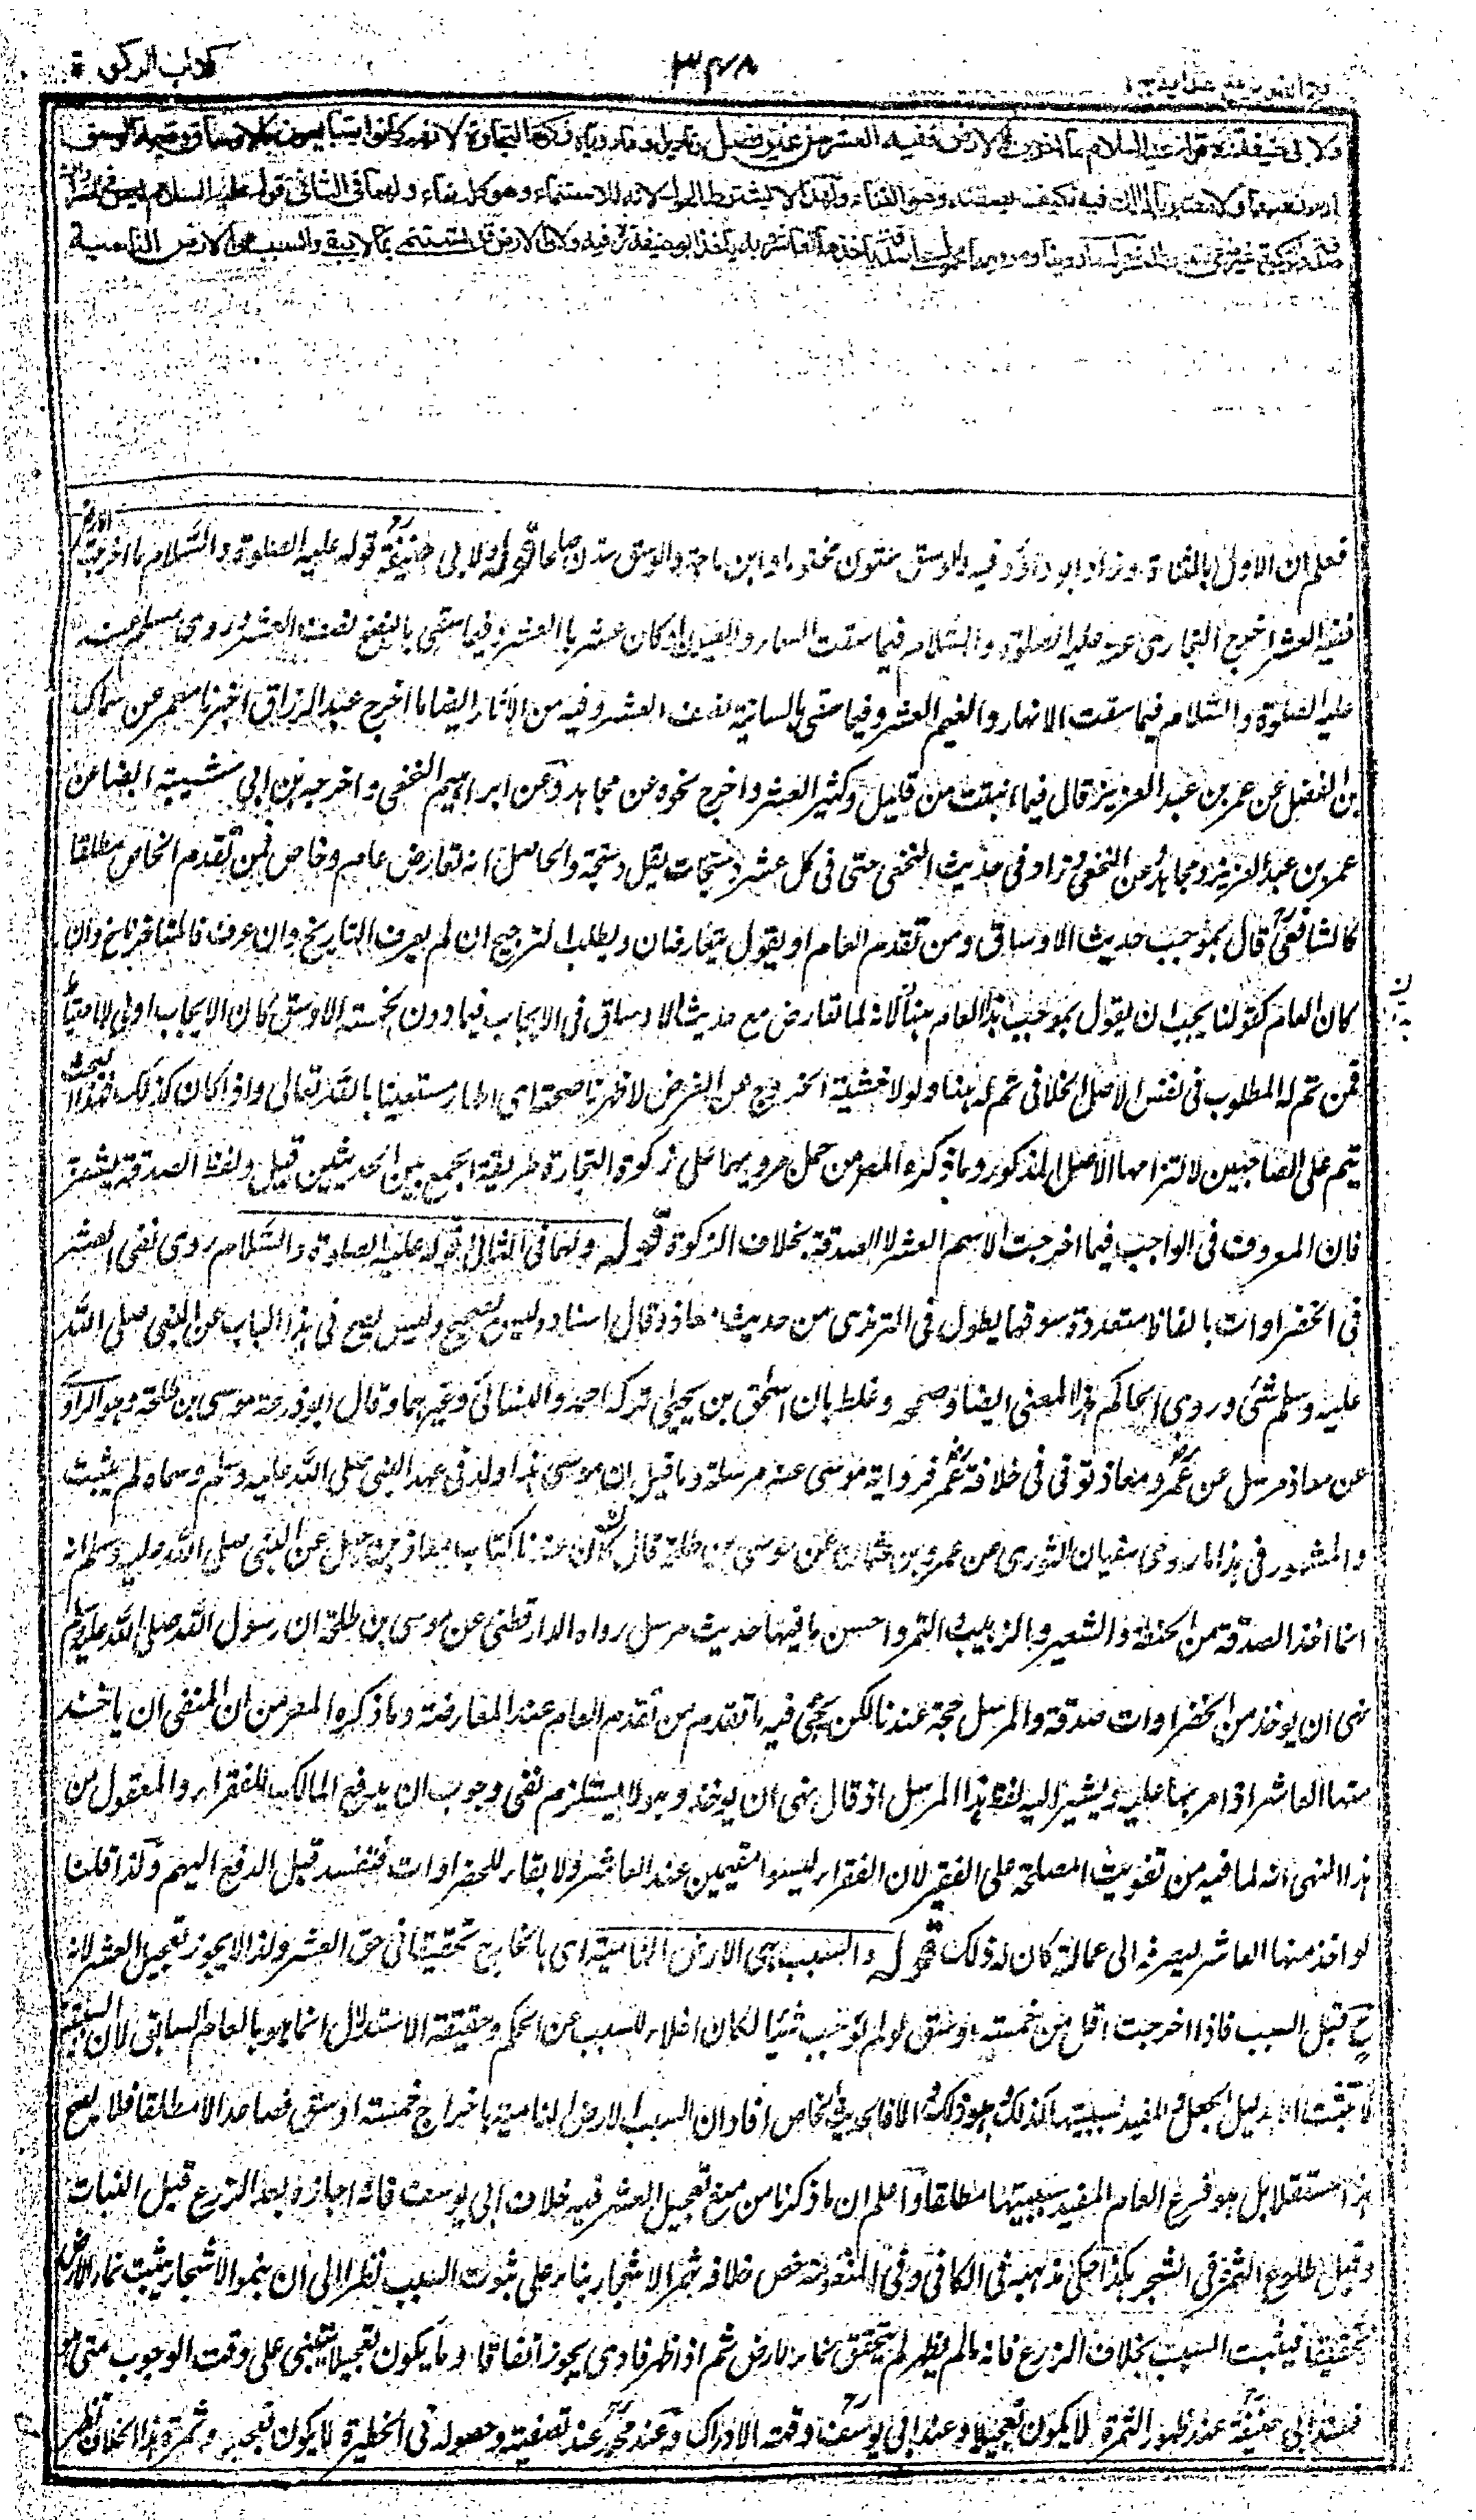 كتاب الزكوة
٣٤٨
ولابى حنيفة قوله عليه السلام ما اخرجت الارض ففيه العشر من غير فصل وتاويل ما روياه زكوة التجارة لانهم كانوا يتبايعون بالاوساق وقيمة الوسق
اربعون درهما ولا معتبر بالمالك فيه فكيف بصفته وهو الغناء ولهذا لا يشترط الحول لانه للاستنماء وهو كله نماء ولهما فى الثانى قوله عليه السلام ليس فى الخضراوات
صدقة والزكوة غير منفية فتعين العشر وله ما روينا ومرويهما محمول على صدقة ياخذها العاشر وبه ياخذ ابوحنيفة فيه ولان الارض قد تستنمى بما لا يبقى والسبب هى الارض النامية
فعلم ان الاول بالمثناة وزاد ابو داؤد فيه والوسق ستون مختوما وابن ماجة والوسق ستون صاعا قوله ولابى حنيفة رح قوله عليه الصلوة والسلام ما اخرجت الارض
ففيه العشر اخرج البخارى عنه عليه الصلوة والسلام فيما سقت السماء والعيون او كان عشريا العشر وفيما سقى بالنضح نصف العشر وروى مسلم عنه
عليه الصلوة والسلام فيما سقت الانهار والغيم العشر وفيما سقى بالسانية نصف العشر وفيه من الآثار ايضا ما اخرج عبد الرزاق اخبرنا معمر عن سماك
بن الفضل عن عمر بن عبد العزيز قال فيما انبتت من قليل وكثير العشر واخرج نحوه عن مجاهد وعن ابراهيم النخعى واخرجه ابن ابى شيبة ايضا عن
عمر بن عبد العزيز ومجاهد وعن النخعى وزاد فى حديث النخعى حتى فى كل عشر دستجات بقل دستجة والحاصل انه تعارض عام وخاص فمن تقدم الخاص مطلقا
كالشافعى رح قال بموجب حديث الاوساق ومن تقدم العام او يقول يتعارضان ويطلب الترجيح ان لم يعرف التاريخ وان عرف فالمتاخر ناسخ وان
كان العام كقولنا يجب ان يقول بموجب هذا العام هنا لانه لما تعارض مع حديث الاوساق فى الايجاب فيما دون الخمسة الاوسق كان الايجاب اولى للاحتياط
فمن تم له المطلوب فى نفس الاصل الخلافى تم له هنا ولولا خشية الخروج عن الغرض لاظهرنا صحته اى اظهار مستعينا بالله تعالى واذا كان كذلك فهذا البحث
يتم على الصاحبين لالتزامهما الاصل المذكور وما ذكره المصمن حمل مرويهما على زكوة التجارة طريقة الجمع بين الحديثين قيل ولفظ الصدقة يشعر به
فان المعروف فى الواجب فيما اخرجت الاسم العشر لا الصدقة بخلاف الزكوة قوله ولهما فى الثانى قوله عليه الصلوة والسلام روى نفى العشر
فى الخضراوات بالفاظ متعددة سوقها يطول فى الترمذى من حديث معاذ وقال اسناده ليس بصحيح وليس يصح فى هذا الباب عن النبى صلى الله
عليه وسلم شئ وروى الحاكم هذا المعنى ايضا وصححه وغلط بان اسحق بن يحيى تركه احمد والنسائى وغيرهما وقال ابو زرعة موسى بن طلحة وهو الراوى
عن معاذ مرسل عن عمر ومعاذ توفى فى خلافة عمر فرواية موسى عنه مرسلة وما قيل ان موسى هذا ولد فى عهد النبى صلى الله عليه وسلم وسماه لم يثبت
والمشهور فى هذا ما روى سفيان الثورى عن عمرو بن عثمان عن موسى بن طلحة قال عندنا كتاب معاذ بن جبل عن النبى صلى الله عليه وسلم انه
انما اخذ الصدقة من الحنطة والشعير والزبيب والتمر واحسن ما فيها حديث مرسل رواه الدارقطنى عن موسى بن طلحة ان رسول الله صلى الله عليه وسلم
نهى ان يوخذ من الخضراوات صدقة والمرسل حجة عندنا لكن يجئ فيه ما تقدم من تقدم العام عند المعارضة وما ذكره المصمن ان المنفى ان ياخذ
منها العاشر اذا مر بها عليه ويشير اليه لفظ هذا المرسل اذ قال نهى ان يوخذ وهو لا يستلزم نفى وجوب ان يدفع المالك للفقراء والمعقول من
هذا النهى انه لما فيه من تفويت المصلحة على الفقير لان الفقراء ليسوا مقيمين عند العاشر ولا بقاء للخضراوات فتفسد قبل الدفع اليهم ولذا قلنا
لو اخذ منها العاشر ليصرفه الى عمالته كان له ذلك قوله والسبب هى الارض النامية اى بالخارج تحقيقا فى حق العشر ولذا لا يجوز تعجيل العشر لانه
ح قبل السبب فاذا اخرجت اقل من خمسة اوسق لو لم توجب شيئا لكان اخلاء للسبب عن الحكم وحقيقة الاستدلال انما هو بالعام السابق لان السببية
لا تثبت الا بدليل الجعل والمفيد لسببيتها كذلك هو ذلك والا فالحديث الخاص افاد ان السبب الارض النامية باخراج خمسة اوسق فصاعدا لا مطلقا فلا يصح
هذا مستقلا بل هو فرع العام المفيد سببيتها مطلقا واعلم ان ما ذكرنا من منع تعجيل العشر فيه خلاف ابى يوسف فانه اجازه بعد الزرع قبل النبات
وقبل طلوع الثمر فى الشجر هكذا حكى مذهبه فى الكافى وفى المنظومة خص خلافه بثمر الاشجار بناء على ثبوت السبب نظرا الى ان بنمو الاشجار يثبت نماء الارض
تحقيقا فيثبت السبب بخلاف الزرع فانه ما لم يظهر لم يتحقق نماء الارض ثم اذا ظهر فادى يجوز اتفاقا وما يكون تعجيلا يبتنى على وقت الوجوب متى هو
فعند ابى حنيفة رح عند ظهور الثمرة لا يكون تعجيلا وعند ابى يوسف رح وقته الادراك وعند محمد رح عند تصفيته وحصوله فى الحظيرة لا يكون تعجيلا وثمرة هذا الخلاف تظهر